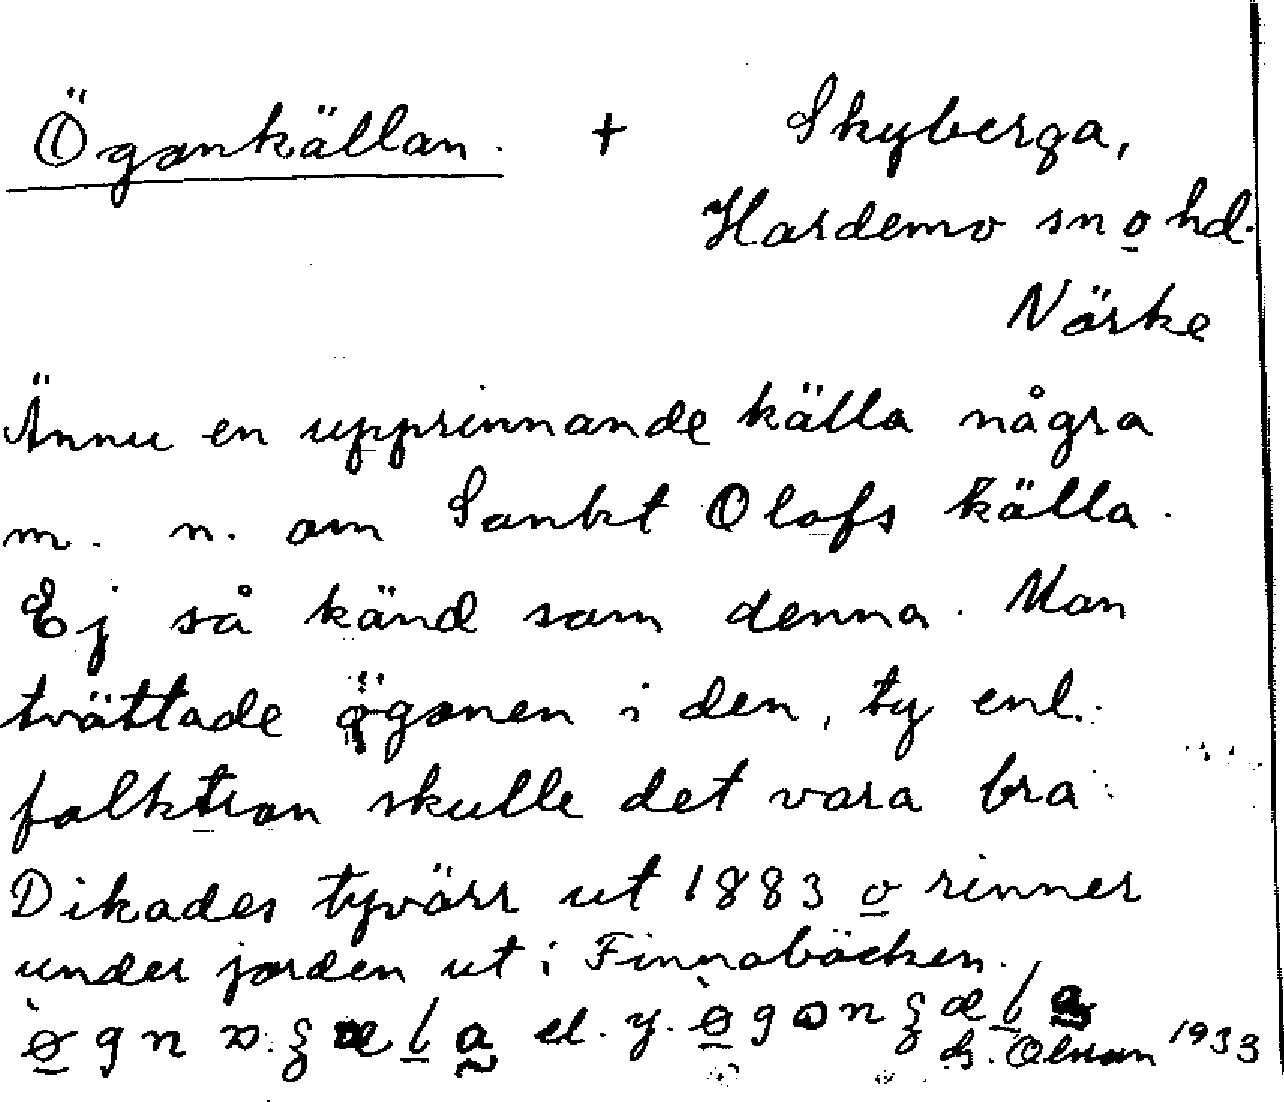 Ögonkällan. + Skyberga,
Hardemo sn o hd.
Närke
Ännu en upprinnande källa några
m. n. om Sankt Olofs källa.
Ej så känd som denna. Man
tvättade ögonen i den, ty enl.
folktron skulle det vara bra.
Dikades tyvärr ut 1883 o rinner
under jorden ut i Finnabäcken.
el. y.
Olsson 1933